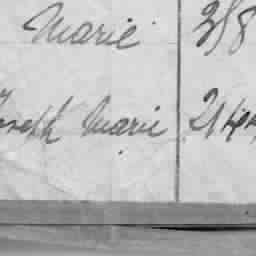 Marie 2/8
Joseph Marie 21